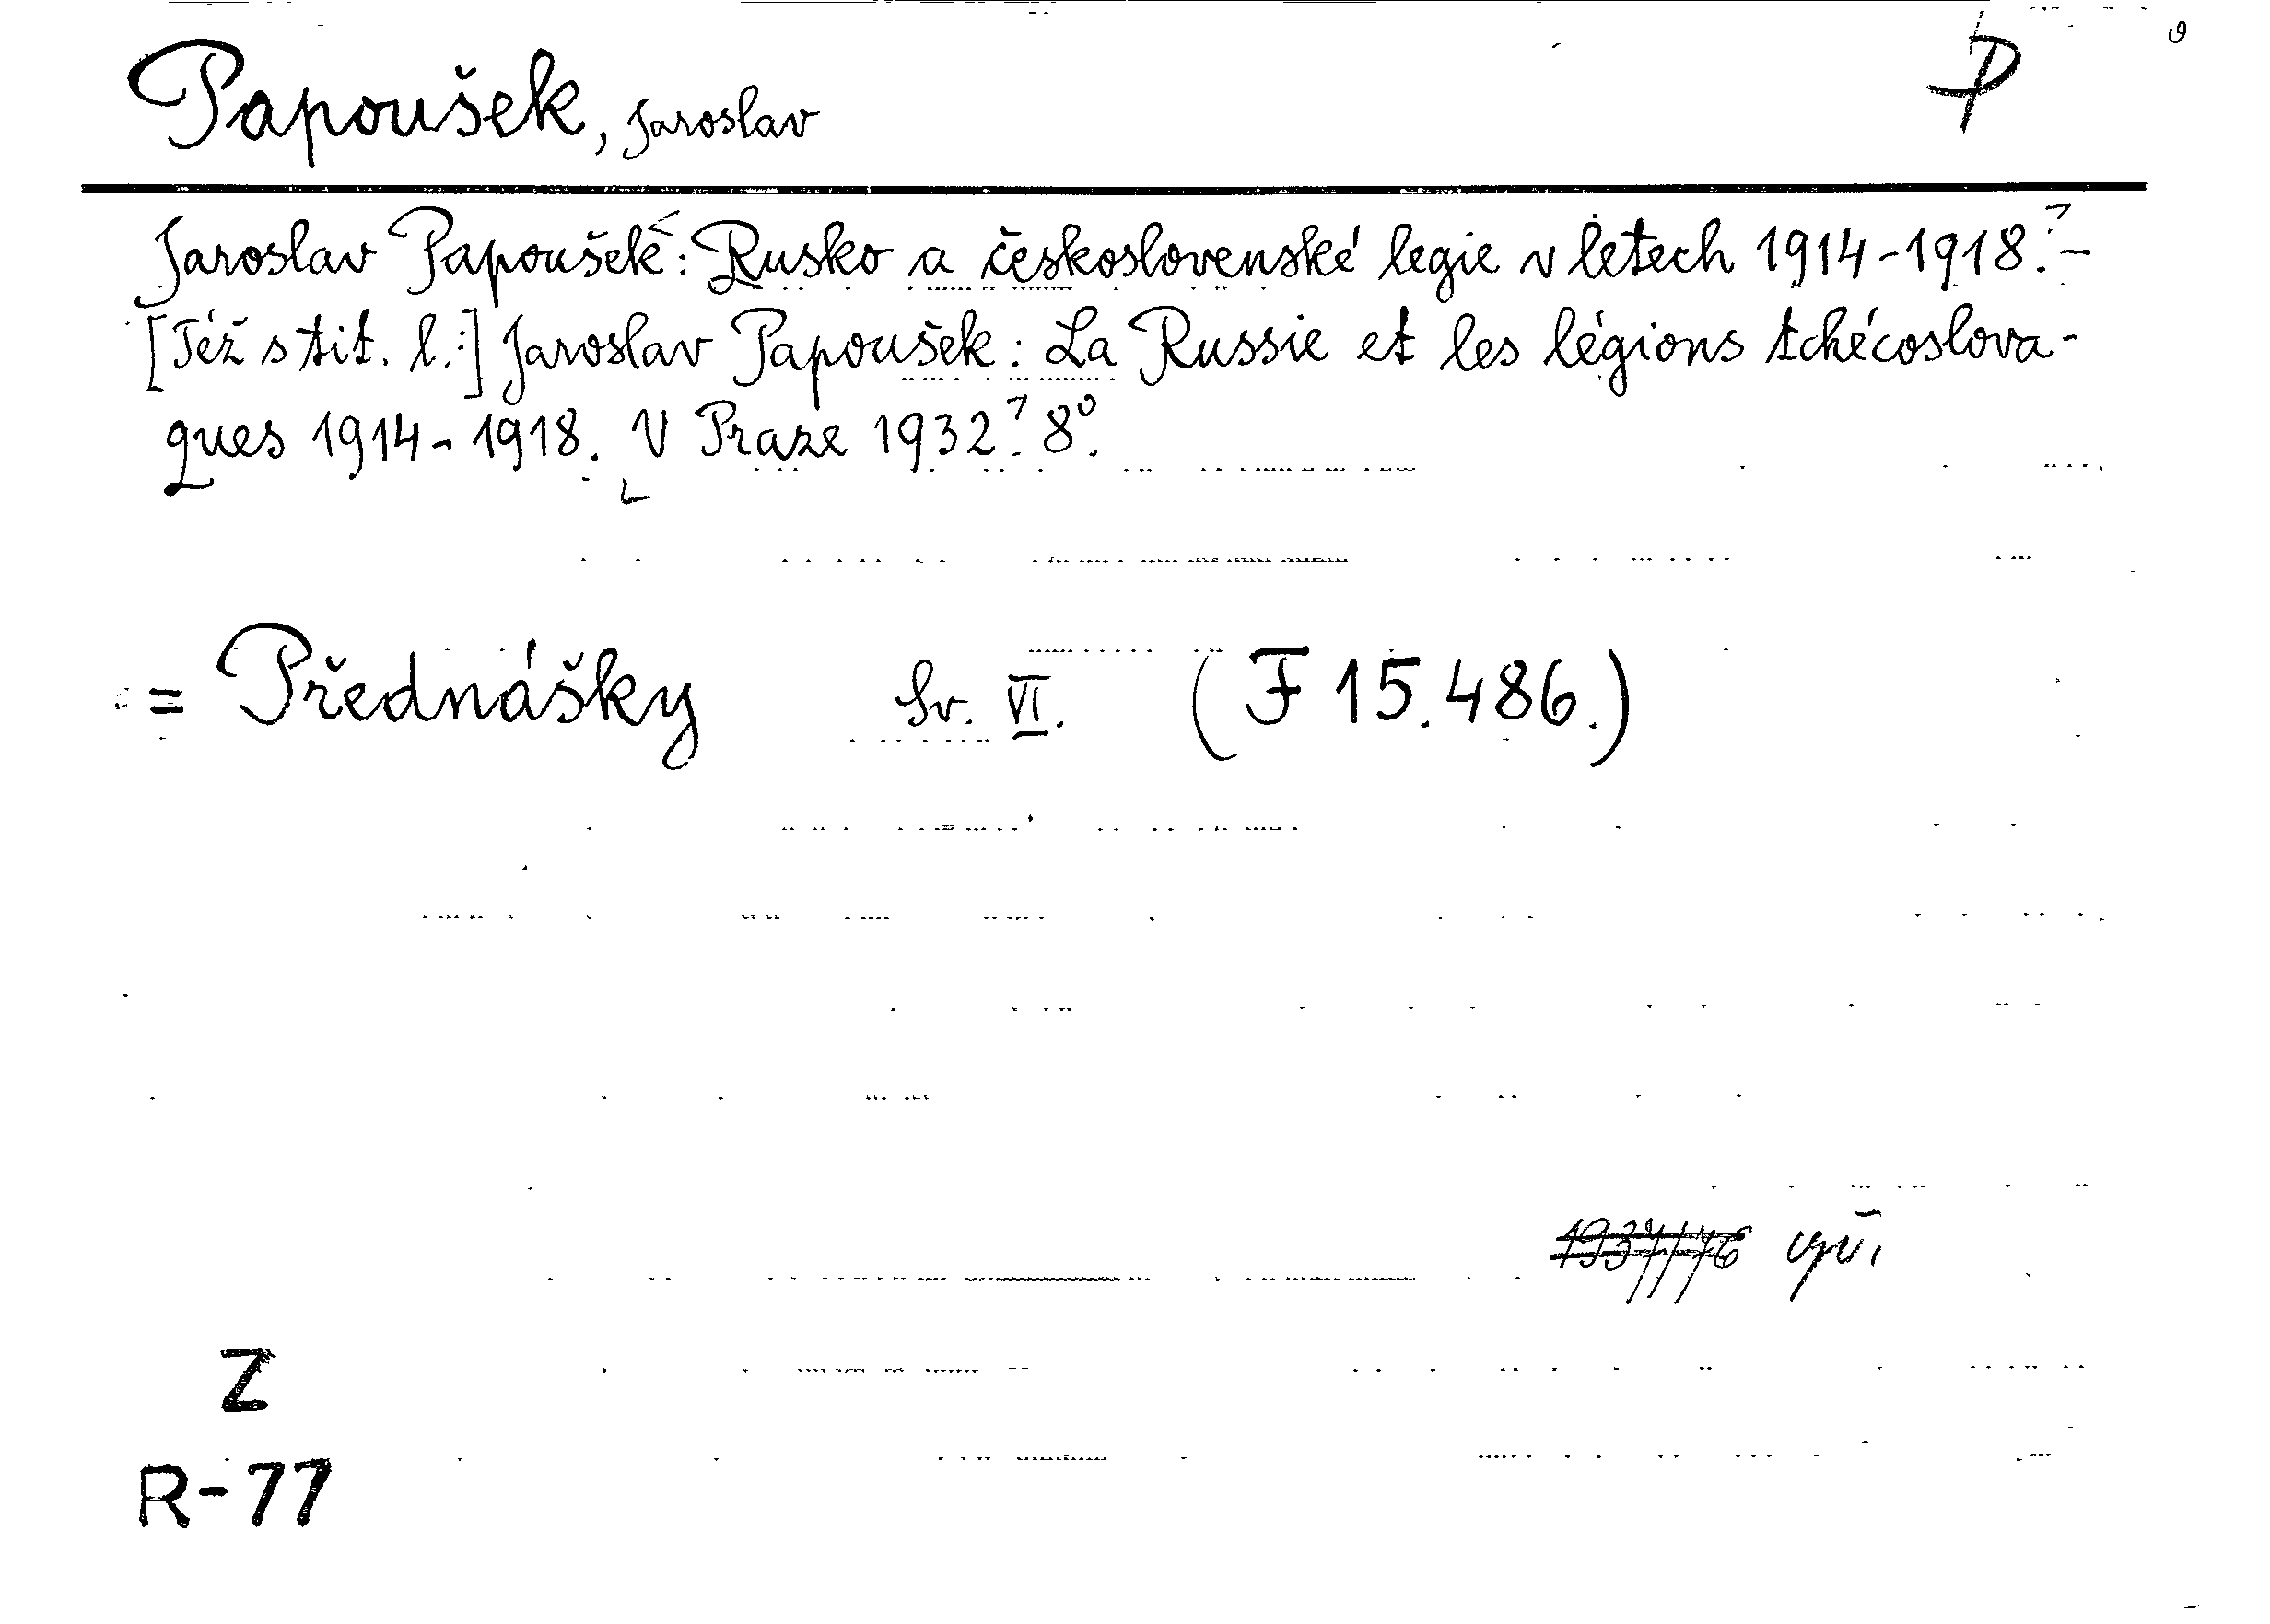 Papoušek, Jaroslav P
Jaroslav Papoušek: Rusko a československé legie v letech 1914-1918. -
[Též s tit. l.:] Jaroslav Papoušek: La Russie et les légions tchécoslova-
ques 1914-1918. V Praze 1932. 8°.
= Přednášky Sv. VI. (F 15.486.)
1937/176
Z
R-77